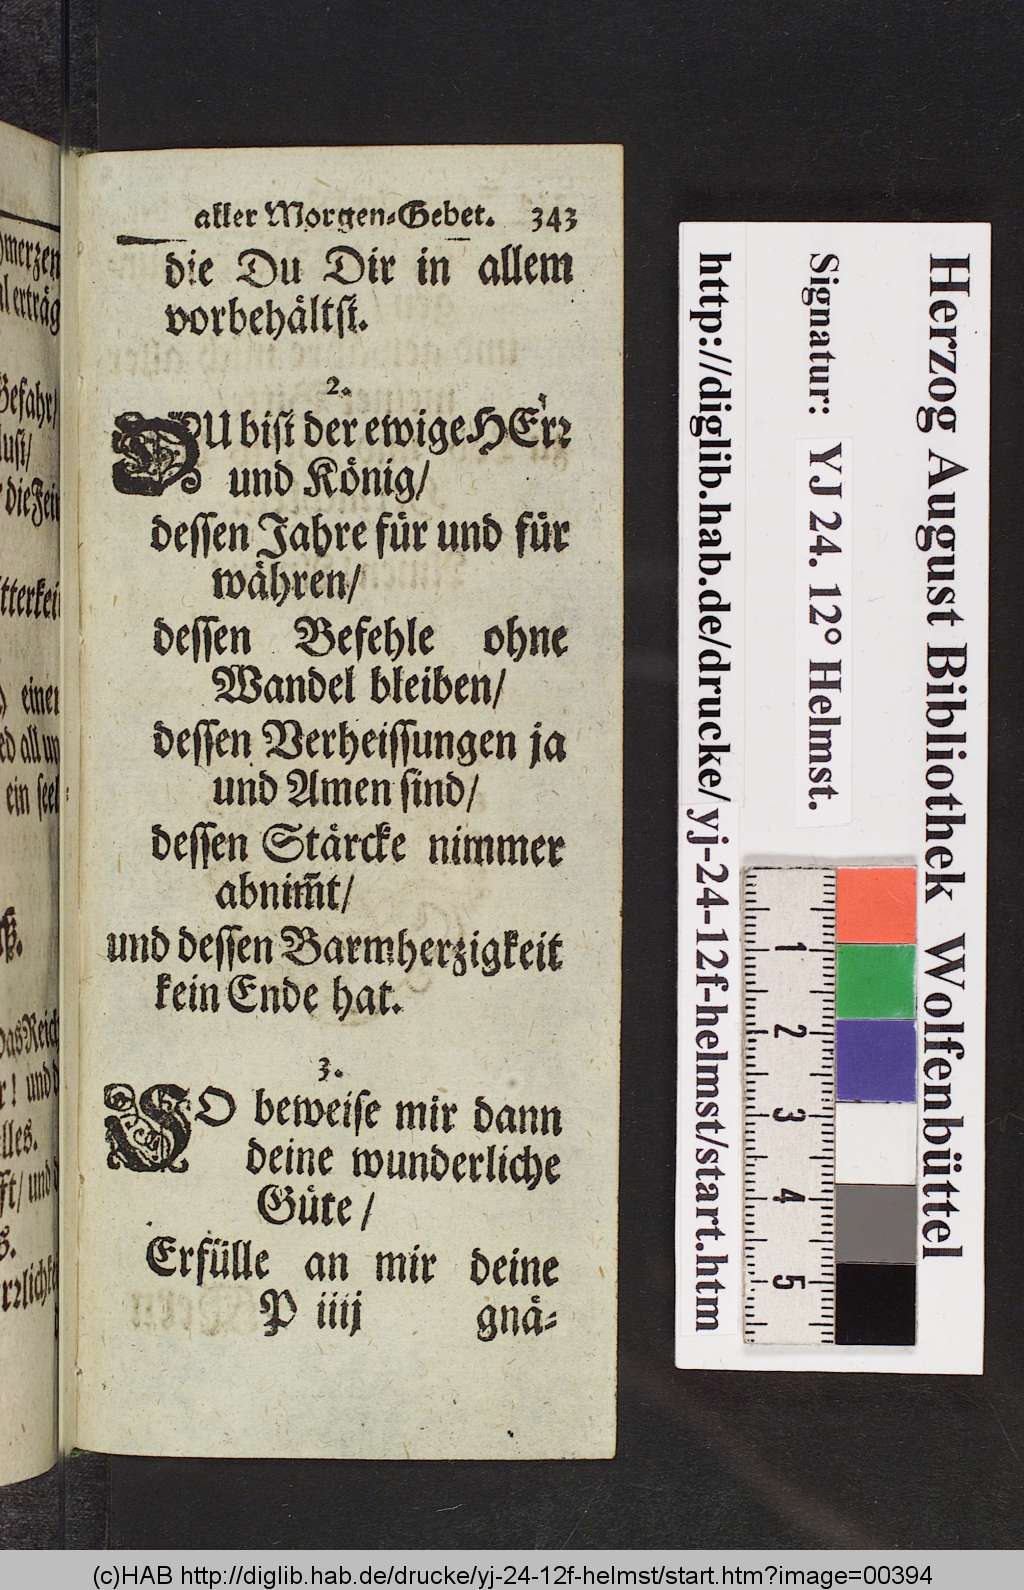 aller Morgen-Gebet. 343
die Du Dir in allem
vorbehältst.
2.
DU bist der ewige HErr
und König/
dessen Jahre für und für
währen/
dessen Befehle ohne
Wandel bleiben/
dessen Verheissungen ja
und Amen sind/
dessen Stärcke nimmer
abnim̃t/
und dessen Barmherzigkeit
kein Ende hat.
3.
SO beweise mir dann
deine wunderliche
Güte/
Erfülle an mir deine
P iiij gnä-
Herzog August Bibliothek Wolfenbüttel
Signatur: YJ 24. 12° Helmst.
http://diglib.hab.de/drucke/yj-24-12f-helmst/start.htm
1
2
3
4
5
(c)HAB http://diglib.hab.de/drucke/yj-24-12f-helmst/start.htm?image=00394